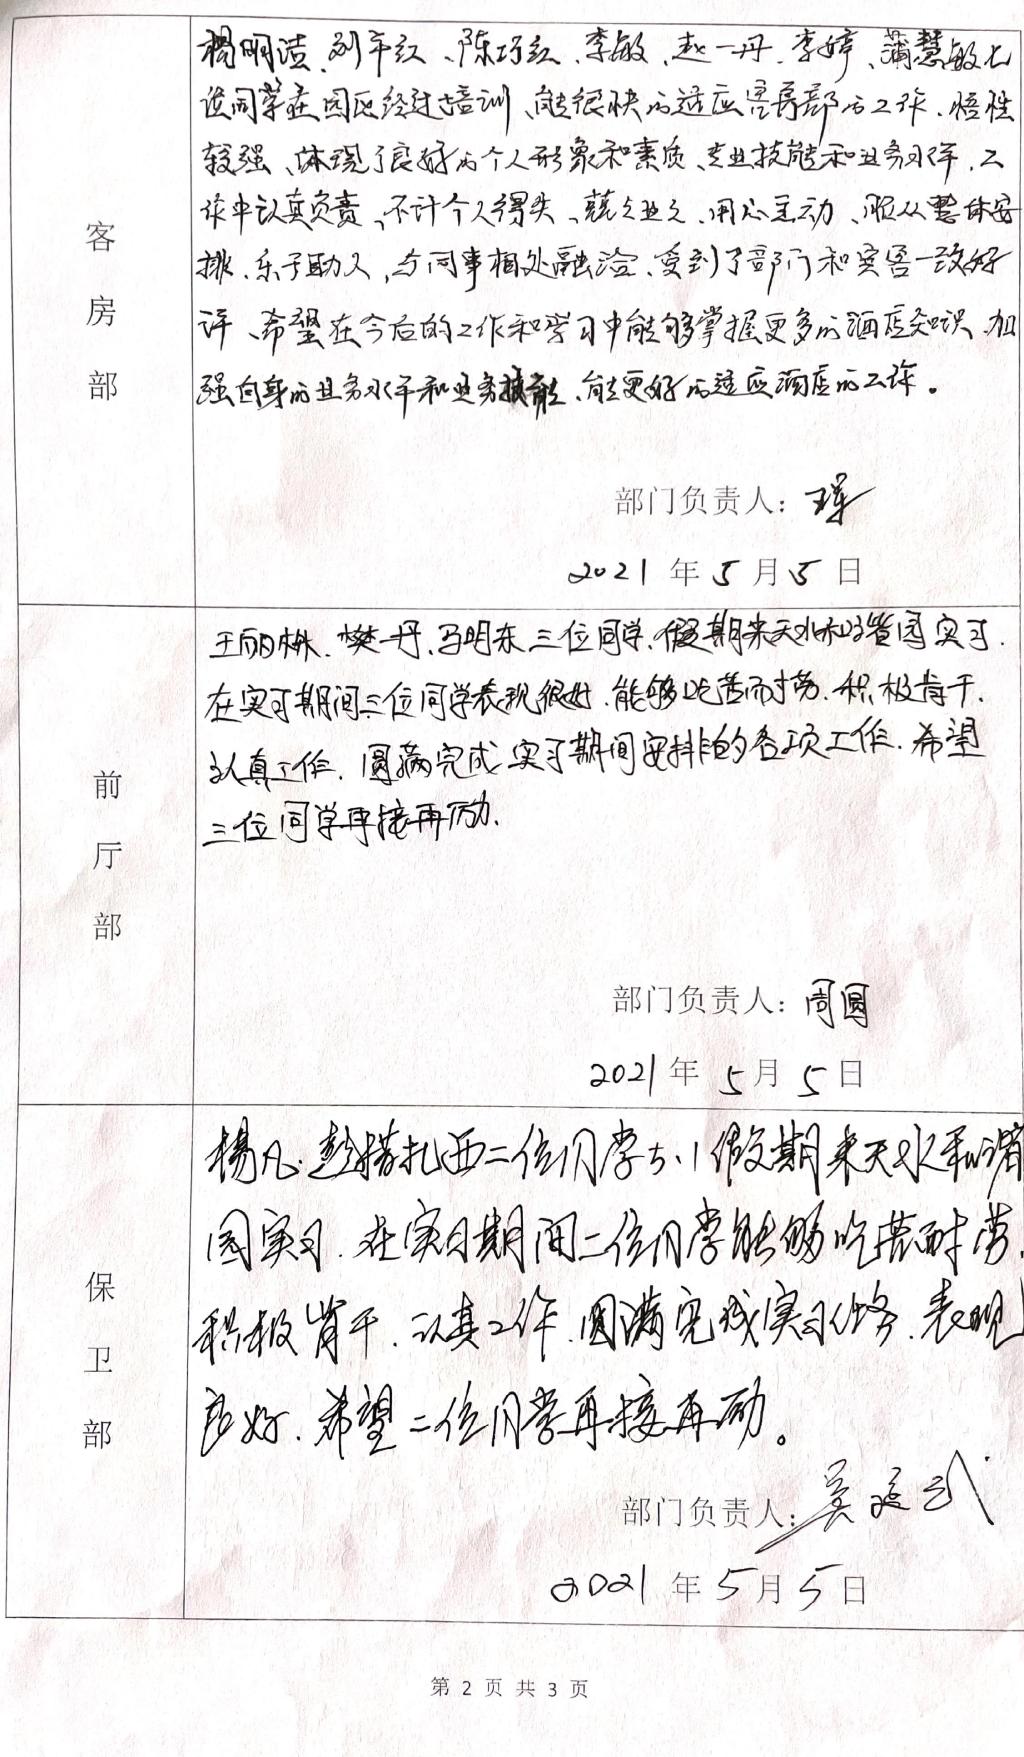 客房部
杨明洁、刘平红、陈巧红、李敏、赵一丹、李婷、蒲慧敏七
位同学在园区经过培训、能很快的适应客房部的工作、悟性
较强、体现了良好的个人形象和素质、专业技能和业务水平、工
作中认真负责、不计个人得失、兢兢业业、用心主动、服从整体安
排、乐于助人、与同事相处融洽、受到了部门和宾客一致好
评、希望在今后的工作和学习中能够掌握更多的酒店知识、加
强自身的业务水平和业务技能、能更好的适应酒店的工作。
部门负责人：
2021年5月5日
前厅部
王丽林、樊丹、马明东三位同学、假期来天水和谐园实习.
在实习期间三位同学表现很好、能够吃苦而劳、积极肯干、
认真工作、圆满完成实习期间安排的各项工作、希望
三位同学再接再励、
部门负责人：周圆
2021年5月5日
保卫部
杨凡、彭措扎西二位同学5.1假期来天水和谐
园实习、在实习期间二位同学能够吃苦耐劳、
积极肯干、认真工作、圆满完成实习任务、表现
良好、希望二位同学再接再励。
部门负责人：吴廷武
2021年5月5日
第 2 页 共 3 页